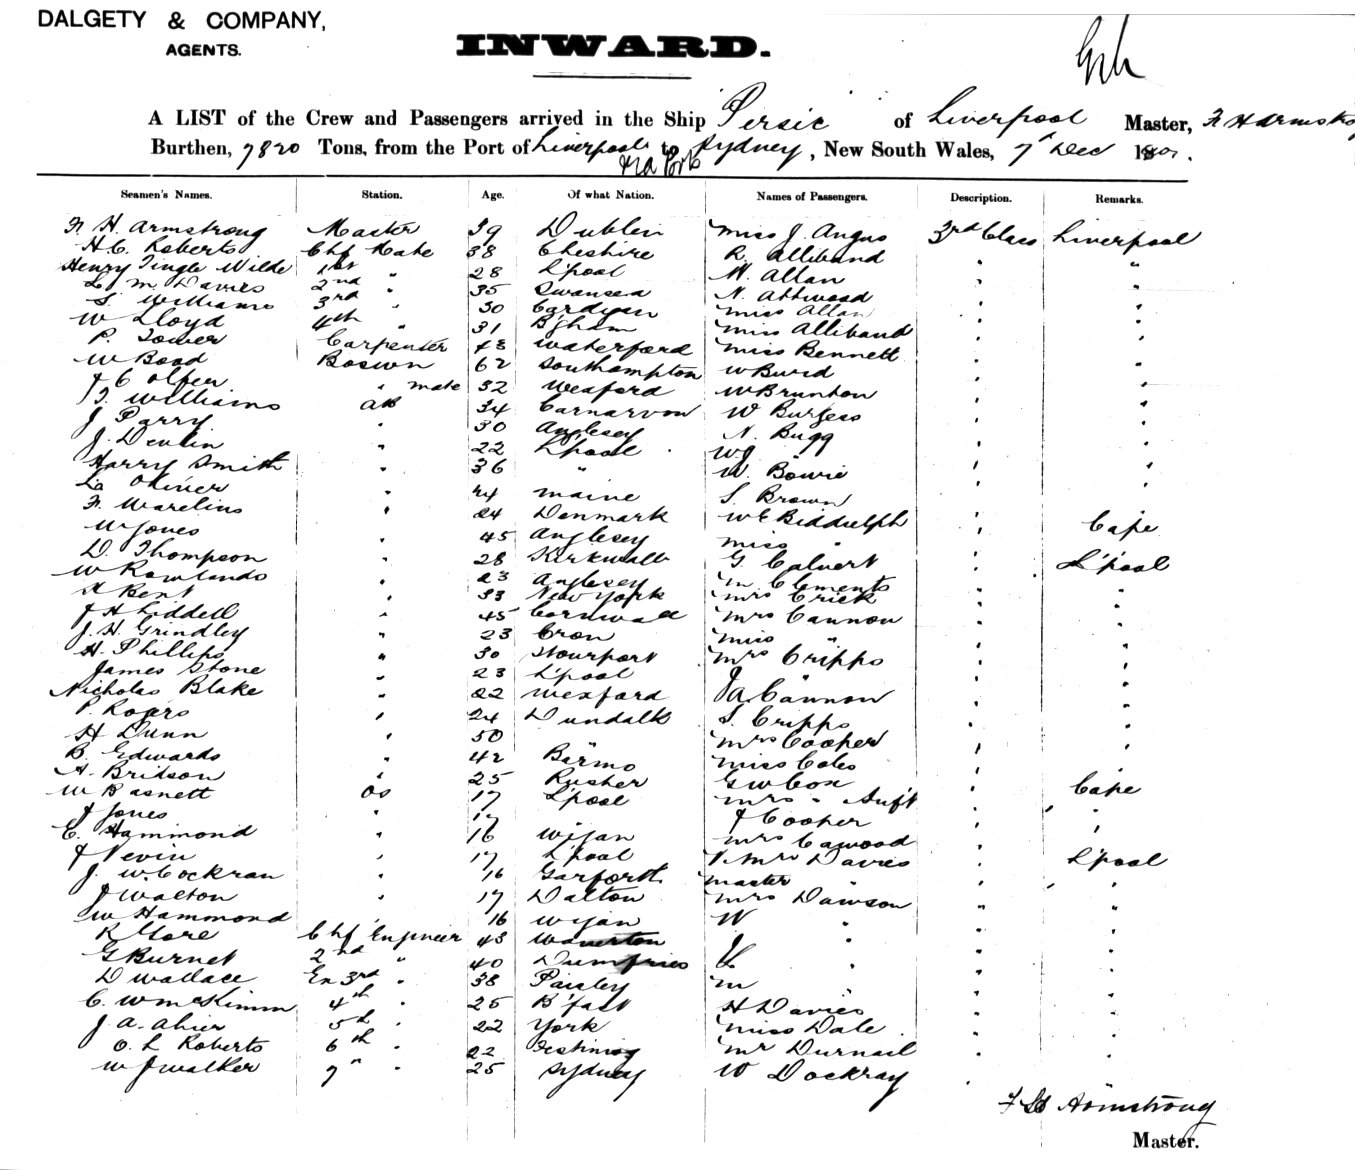 DALGETY & COMPANY,
AGENTS.
INWARD.
A LIST of the Crew and Passengers arrived in the Ship "Persic" of Liverpool Master, F H Armstro
Burthen, 7820 Tons, from the Port of Liverpool to Sydney, New South Wales, 7th Dec 190.
Seamen's Names. Station. Age. Of what Nation. Names of Passengers. Description. Remarks.
F. H. Armstrong Master 39 Dublin Miss J. Angus 3rd Class Liverpool
H.C. Roberts Chf Mate 38 Cheshire R. Alliband " "
Henry Tingle Wilde 1st " 28 L'pool W. Allan " "
L. M. Davies 2nd " 35 Swansea N. Attwood " "
S. Williams 3rd " 30 Cardigan Miss Allan " "
W Lloyd 4th " 31 B'ham Miss Alliband " "
P. Tower Carpenter 48 Waterford Miss Bennett " "
W Boad Boswn 62 Southampton W Burd " "
J C " mate 32 Wexford W Brunton " "
T. Williams AB 34 Carnarvon W Burgess " "
J Parry " 30 Anglesey N. Bugg " "
J. Devlin " 22 L'pool W J " "
Harry Smith " 36 " W. Bowie " "
Oliver " 24 Maine S. Brown " "
F. Warelius " 24 Denmark W E Biddulph " Cape
W Jones " 45 Anglesey Miss " "
D. Thompson " 28 Kirkwall G Calvert " L'pool
W Rowlands " 23 Anglesey M Clements " "
H Kent " 33 New York Mrs Crick " "
J H Liddell " 45 Cornwall Mrs Cannon " "
J. H. Grindley " 23 Miss " " "
H. Phillips " 30 Stourport Mrs Cripps " "
James Stone " 23 L'pool J " "
Nicholas Blake " 22 Wexford A Cannon " "
P. Rogers " 24 Dundalk S. Cripps " "
H Dunn " 50 Mrs Cooper " "
B. Edwards " 42 Miss Coles " "
A. Bridson " 25 Rusher G W Cox " Cape
W Basnett OS 17 L'pool Mrs " & Inft " "
J Jones " 17 J Cooper " "
C. Hammond " 16 Wigan Mrs Cawood " "
J Nevin " 17 L'pool Mrs Davies " L'pool
J. W. Cockran " 16 Garforth Master " " "
J Walton " 17 Dalton Mrs Dawson " "
W Hammond " 16 Wigan W " " "
R Gore Chf Engineer 43 Waverton J " " "
G Burnet 2nd " 40 Dumfries L " " "
D Wallace En 3rd " 38 Paisley M " "
C. W McKimm 4th " 25 B'fast H Davies " "
J A. Ahier 5th " 22 York Miss Dale " "
O. L Roberts 6th " 22 Festiniog Mr Durnail " "
W J Walker 7" " 25 Sydney W Dockray " "
F H Armstrong
Master.